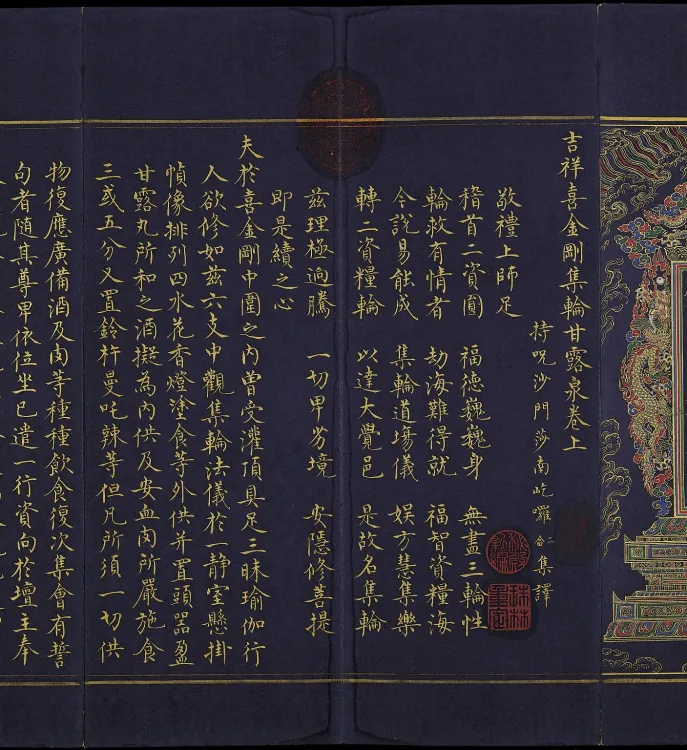 吉祥喜金剛集輪甘露泉卷上
持呪沙門莎南屹囉二合集譯
敬禮上師足
稽首二資圓 福德巍巍身 無盡三輪性
輪救有情者 劫海難得就 福智資糧海
令說易能成 集輪道場儀 娛方慧集樂
轉二資糧輪 以達大覺邑 是故名集輪
茲理極迥騰 一切卑劣境 安隱修菩提
即是續之心
夫於喜金剛中圍之內曾受灌頂具足三昧瑜伽行
人欲修如茲六支中觀集輪法儀於一靜室懸掛
幀像排列四水花香燈塗食等外供并置頭器盈
甘露丸所和之酒擬為內供及安血肉所嚴施食
三或五分又置鈴杵曼吒辣等但凡所須一切供
物復應廣備酒及肉等種種飲食復次集會有誓
句者隨其尊卑依位坐已遣一行資向於壇主奉